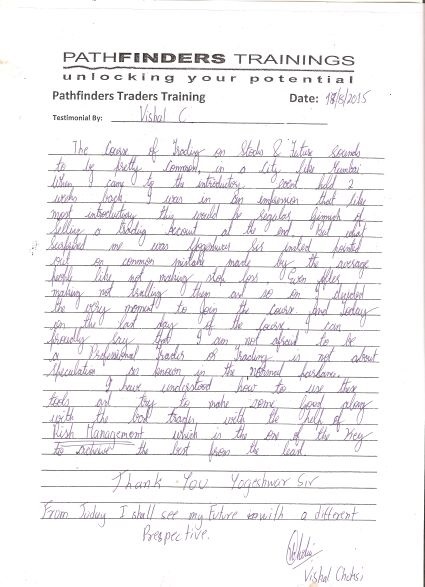 PATHFINDERS TRAININGS
unlocking your potential
Pathfinders Traders Training Date: 18/8/2015
Testimonial By: Vishal C
The Course of Trading on Stocks & Future sounds
to be pretty common, in a city like Mumbai
When I came to the introductory event held 2
weeks back, I was in an impression that like
most introductory this would be regular gimmick of
selling a trading account at the end. But what
me was Yogeshwar Sir insted pointed
out on common mistake made by the average
people like not making stop loss Even after
making not trailling them and so on I decided
the very moment to join the course and Today
on the last day of the course I can
proudly say that I am not afraid to be
a Professional Trader or Trading is not about
Speculation as known in the normal parlance.
I have understood how to use these
tools and try to make some good along
with the best trades with the help of
Risk Management which is the one of the Key
to the best from the
Thank You Yogeshwar Sir
From Today I shall see my Future with a different
Perspective.
Vishal Chhisi